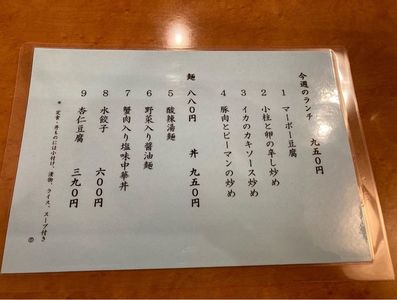 今週のランチ 九五0円
1 マーボー豆腐
2 小柱と卵の辛し炒め
3 イカのカキソース炒め
4 豚肉とピーマンの炒め
麺 八八0円 丼 九五0円
5 酸辣湯麺
6 野菜入り醤油麺
7 蟹肉入り塩味中華丼
8 水餃子 六00円
9 杏仁豆腐 三九0円
* 定食・丼ものには小付け、漬物、ライス、スープ付き